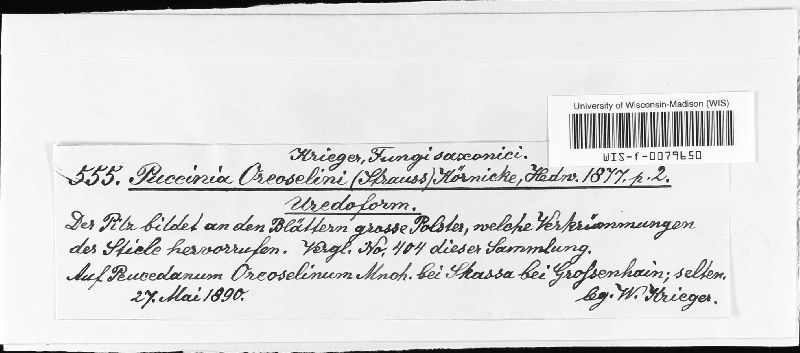 University of Wisconsin-Madison (WIS)
WIS-f-0079650
Krieger, Fungi saxonici.
555. Puccinia Oreoselini (Strauss) Körnicke, Hedw. 1877. p. 2.
Uredoform.
Der Pilz bildet an den Blättern grosse Polster, welche Verkrümmungen
der Stiele hervorrufen. Vergl. No. 404 dieser Sammlung.
Auf Peucedanum Oreoselinum Mnch. bei Skassa bei Großenhain; selten.
27. Mai 1890. leg. W. Krieger.